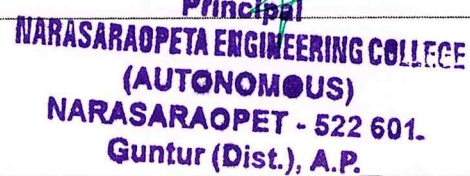 Principal
NARASARAOPETA ENGINEERING COLLEGE
(AUTONOMOUS)
NARASARAOPET - 522 601.
Guntur (Dist.), A.P.